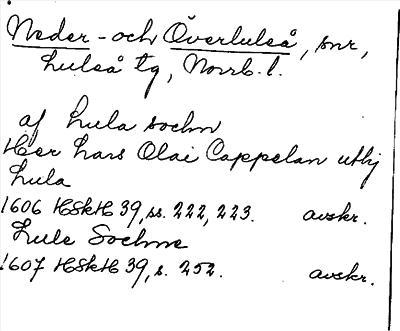 Neder- och Överluleå, snr,
Luleå tg, Norrb. l.
af Lula sochn
Her Lars Olai Cappelan uthj
Lula
1606 HSkH 39, ss. 222, 223. avskr.
Lule Sochne
1607 HSkH 39, s. 252. avskr.